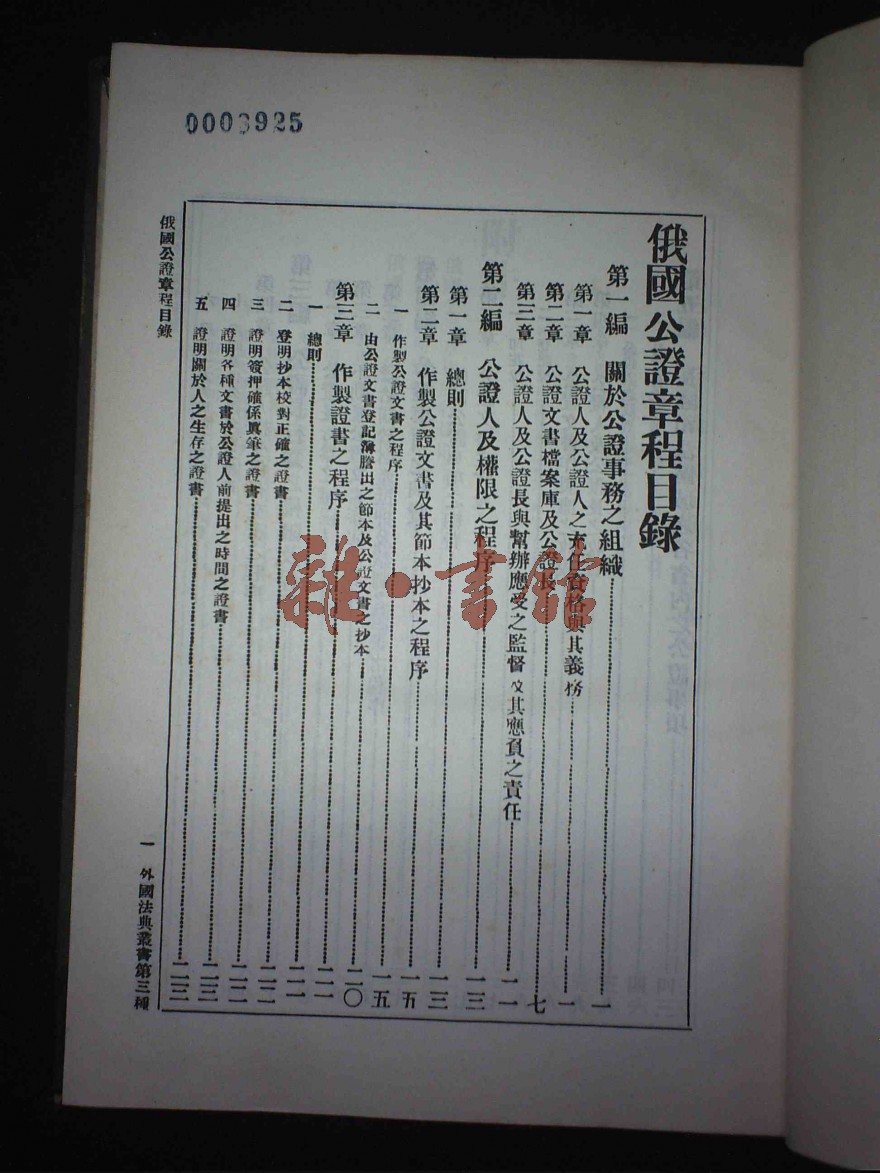 0003925
俄國公證章程目錄
第一編 關於公證事務之組織 一
第一章 公證人及公證人之充任資格與其義務 一
第二章 公證文書檔案庫及公證長 七
第三章 公證人及公證長與幫辦應受之監督及其應負之責任 一一
第二編 公證人及權限之程序 一三
第一章 總則 一三
第二章 作製公證文書及其節本抄本之程序 一五
一 作製公證文書之程序 一五
二 由公證文書登記簿謄出之節本及公證文書之抄本 二〇
第三章 作製證書之程序 二一
一 總則 二一
二 登明抄本校對正確之證書 二二
三 證明簽押確係真筆之證書 二二
四 證明各種文書於公證人前提出之時間之證書 二三
五 證明關於人之生存之證書 二三
俄國公證章程目錄
一 外國法典叢書第三種
雜·書館